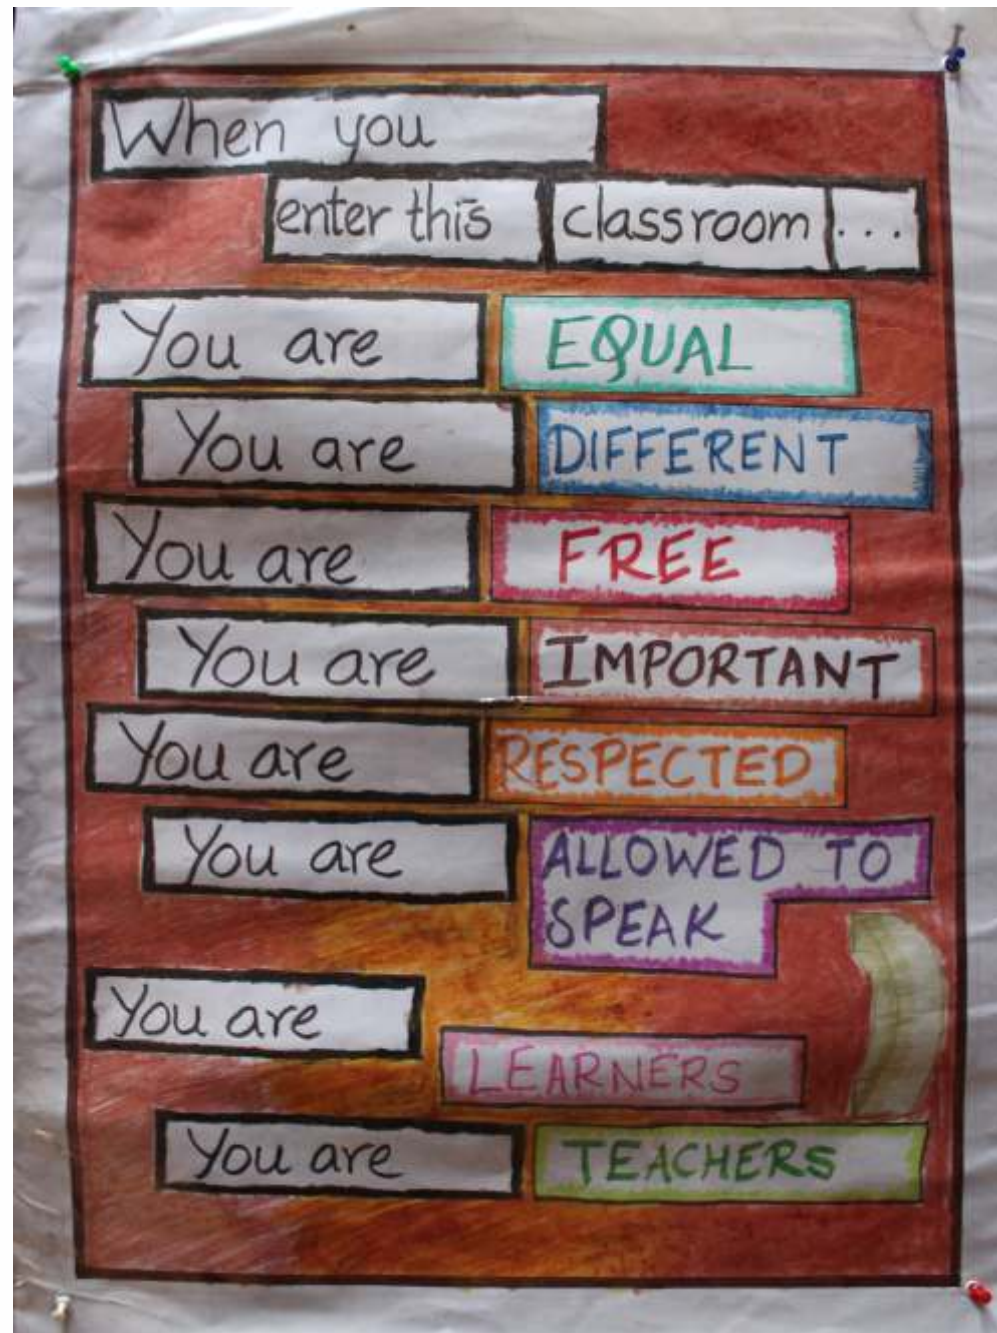 When you
enter this classroom ...
You are EQUAL
You are DIFFERENT
You are FREE
You are IMPORTANT
You are RESPECTED
You are ALLOWED TO
SPEAK
You are
LEARNERS
You are TEACHERS